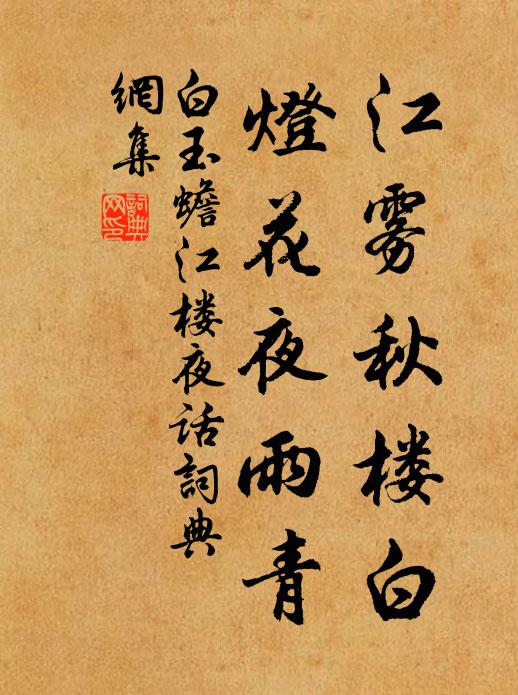 江雾秋楼白
燈花夜雨青
白玉蟾江楼夜话詞典
網集
詞典网印